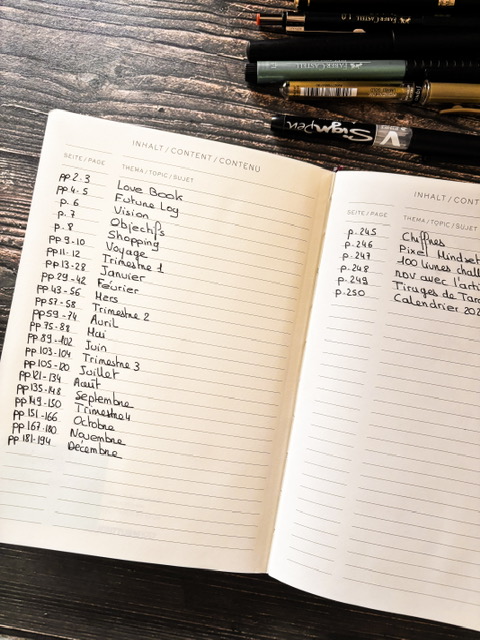 FABER-CASTELL 1.0
FABER-CASTELL
Signpen V
INHALT / CONTENT / CONTENU
SEITE / PAGE THEMA / TOPIC / SUJET
pp 2-3 Love Book
pp 4-5 Future Log
p. 6 Vision
p. 7 Objectifs
p. 8 Shopping
pp 9-10 Voyage
pp 11-12 Trimestre 1
pp 13-28 Janvier
pp 29-42 Février
pp 43-56 Mars
pp 57-58 Trimestre 2
pp 59-74 Avril
pp 75-88 Mai
pp 89-102 Juin
pp 103-104 Trimestre 3
pp 105-120 Juillet
pp 121-134 Août
pp 135-148 Septembre
pp 149-150 Trimestre 4
pp 151-166 Octobre
pp 167-180 Novembre
pp 181-194 Décembre
INHALT / CONT
SEITE / PAGE THEMA / TOPIC / SUJET
p. 245 Chiffres
p. 246 Pixel Mindset
p. 247 100 livres chall
p. 248 rdv avec l'arti
p. 249 Tirages de Taro
p. 250 Calendrier 202